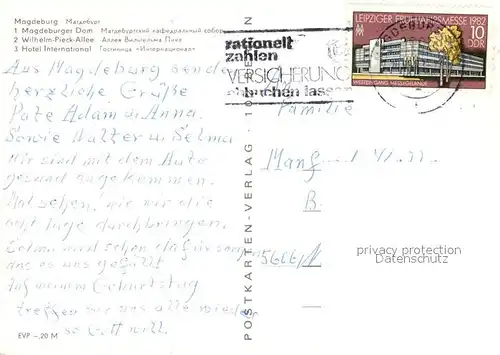 Magdeburg Магдебург
1 Magdeburger Dom Магдебургский кафедральный собор
2 Wilhelm-Pieck-Allee Аллея Вильгельма Пика
3 Hotel International Гостиница «Интернационал»
Aus Magdeburg senden
herzliche Grüße
Pate Adam u. Anna.
Sowie Walter u. Selma
Wir sind mit dem Auto
gesund angekommen.
Mal sehen, wie wir die
acht Tage durchbringen.
Selma wird schon dafür sorgen
das es uns gefällt
Auf meinem Geburtstag
treffen wir uns alle wieder
so Gott will.
EVP –.20 M
POSTKARTEN-VERLAG
rationell
zahlen
VERSICHERUNG
abbuchen lassen
LEIPZIGER FRÜHJAHRSMESSE 1982
MM
10
DDR
WESTEINGANG MESSEGELÄNDE
Familie
Manf
B.
privacy protection
Datenschutz